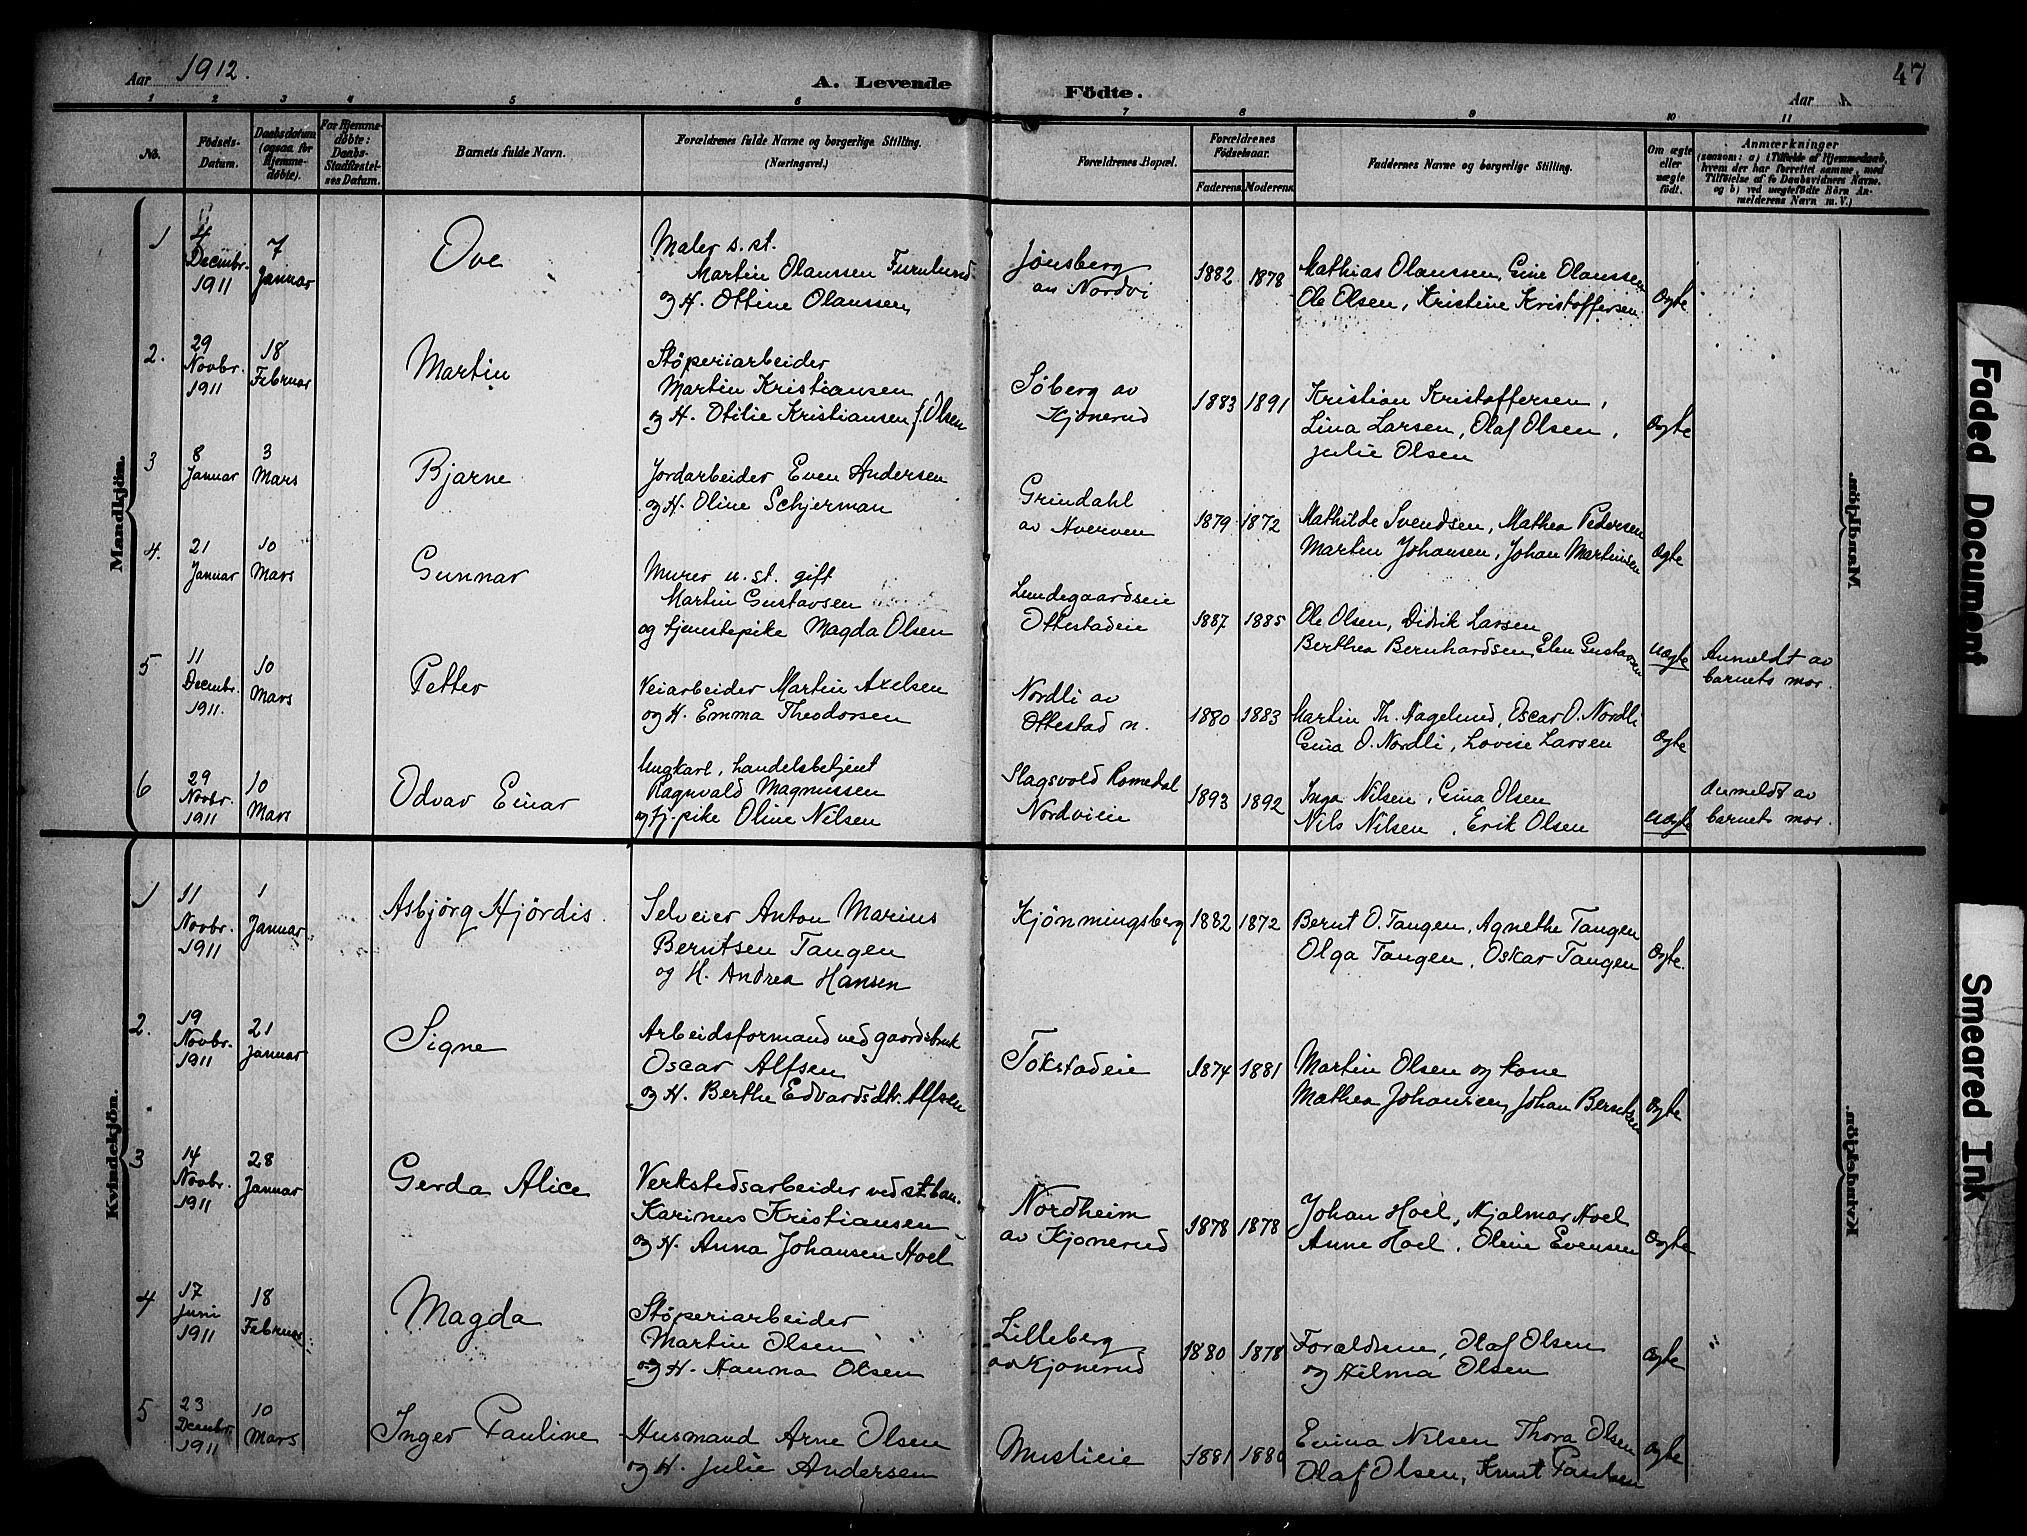 Aar 1912.
A. Levende Födte.
Aar
47
1 2 3 4 5 6 7 8 9 10 11
No.
Födsels-Datum.
Daabsdatum (ogsaa for Hjemme-døbte).
For Hjemme-døbte: Daabs-Stadfæstel-ses Datum.
Barnets fulde Navn.
Forældrenes fulde Navne og borgerlige Stilling. (Næringsvei.)
Forældrenes Bopæl.
Forældrenes Födselsaar.
Faderens. Moderens.
Faddernes Navne og borgerlige Stilling.
Om ægte eller uægte födt.
Anmærkninger
(saasom: a) i Tilfælde af Hjemmedaab, hvem der har forrettet samme, med Tilföielse af to Daabsvidners Navne, og b) ved uægtefödte Börn Anmelderens Navn m. V.)
Mandkjön.
Mandkjön.
1
4 Decmbr. 1911
7 Januar
Ove
Maler s. st.
Martin Olaussen Furulund
og H. Ottine Olaussen
Jønsberg
av Nordvi
1882 1878
Mathias Olaussen, Gine Olaussen
Ole Olsen, Kristine Kristoffersen
ægte
2.
29 Novbr. 1911
18 Februar
Martin
Støperiarbeider
Martin Kristiansen
og H. Otilie Kristiansen f. Olsen
Søberg av
Kjonerud
1883 1891
Kristian Kristoffersen,
Lina Larsen, Olaf Olsen,
Julie Olsen
ægte
3
8 Januar
3 Mars
Bjarne
Jordarbeider Even Andersen
og H. Oline Schjerman
Grindahl
av Hverven
1879 1872
Mathilde Svendsen, Mathea Pedersen
Martin Johansen, Johan Martinsen
ægte
4.
21 Januar
10 Mars
Gunnar
Murer u. st. gift
Martin Gustavsen
og tjenestepike Magda Olsen
Lundegaardseie
Ottestadeie
1887 1885
Ole Olsen, Didrik Larsen
Berthea Bernhardsen, Elen Gustavsen
uægte
Anmeldt av
barnets mor.
5
11 Decmbr. 1911.
10 Mars
Petter
Veiarbeider Martin Axelsen
og H. Emma Theodorsen
Nordli av
Ottestad n.
1880 1883
Martin Th. Hagelund, Oscar O. Nordli
Gina O. Nordli, Lovise Larsen
ægte
6
29 Novbr. 1911
10 Mars
Odvar Einar
Ungkarl, handelsbetjent
Ragnvald Magnussen
og tj.-pike Oline Nilsen
Slagsvold Romedal
Nordvieie
1893 1892
Inga Nilsen, Gina Olsen
Nils Nilsen, Erik Olsen
uægte
Anmeldt av
barnets mor.
Kvindekjön.
Kvindekjön.
1
11 Novbr. 1911
1 Januar
Asbjørg Hjørdis.
Selveier Anton Marius
Berntsen Tangen
og H. Andrea Hansen
Kjønmingsberg
1882 1872
Bernt O. Tangen, Agnethe Tangen
Olga Tangen, Oskar Tangen
ægte.
2.
19 Novbr. 1911
21 Januar
Signe
Arbeidsformand ved gaardsbruk
Oscar Alfsen
og H. Berthe Edvardsdtr. Alfsen
Tokstadeie
1874 1881
Martin Olsen og kone
Mathea Johansen, Johan Berntsen
ægte
3
14 Novbr. 1911
28 Januar
Gerda Alice
Verkstedsarbeider ved st.ban.
Karinus Kristiansen
og H. Anna Johansen Hoel
Nordheim
av Kjonerud
1878 1878
Johan Hoel, Hjalmar Hoel
Anne Hoel, Oline Evensen
ægte
4
17 Juni 1911
18 Februar
Magda
Støperiarbeider
Martin Olsen
og H. Hanna Olsen
Lilleberg
av Kjonerud
1880 1878
Foraldrene, Olaf Olsen
og Hilma Olsen
ægte
5
23 Decmbr. 1911
10 Mars
Inger Pauline
Husmand Arne Olsen
og H. Julie Andersen
Mustieie
1881 1880
Emma Nilsen Thora Olsen
Olaf Olsen, Knut Paulsen
ægte
Faded Document
Smeared Ink